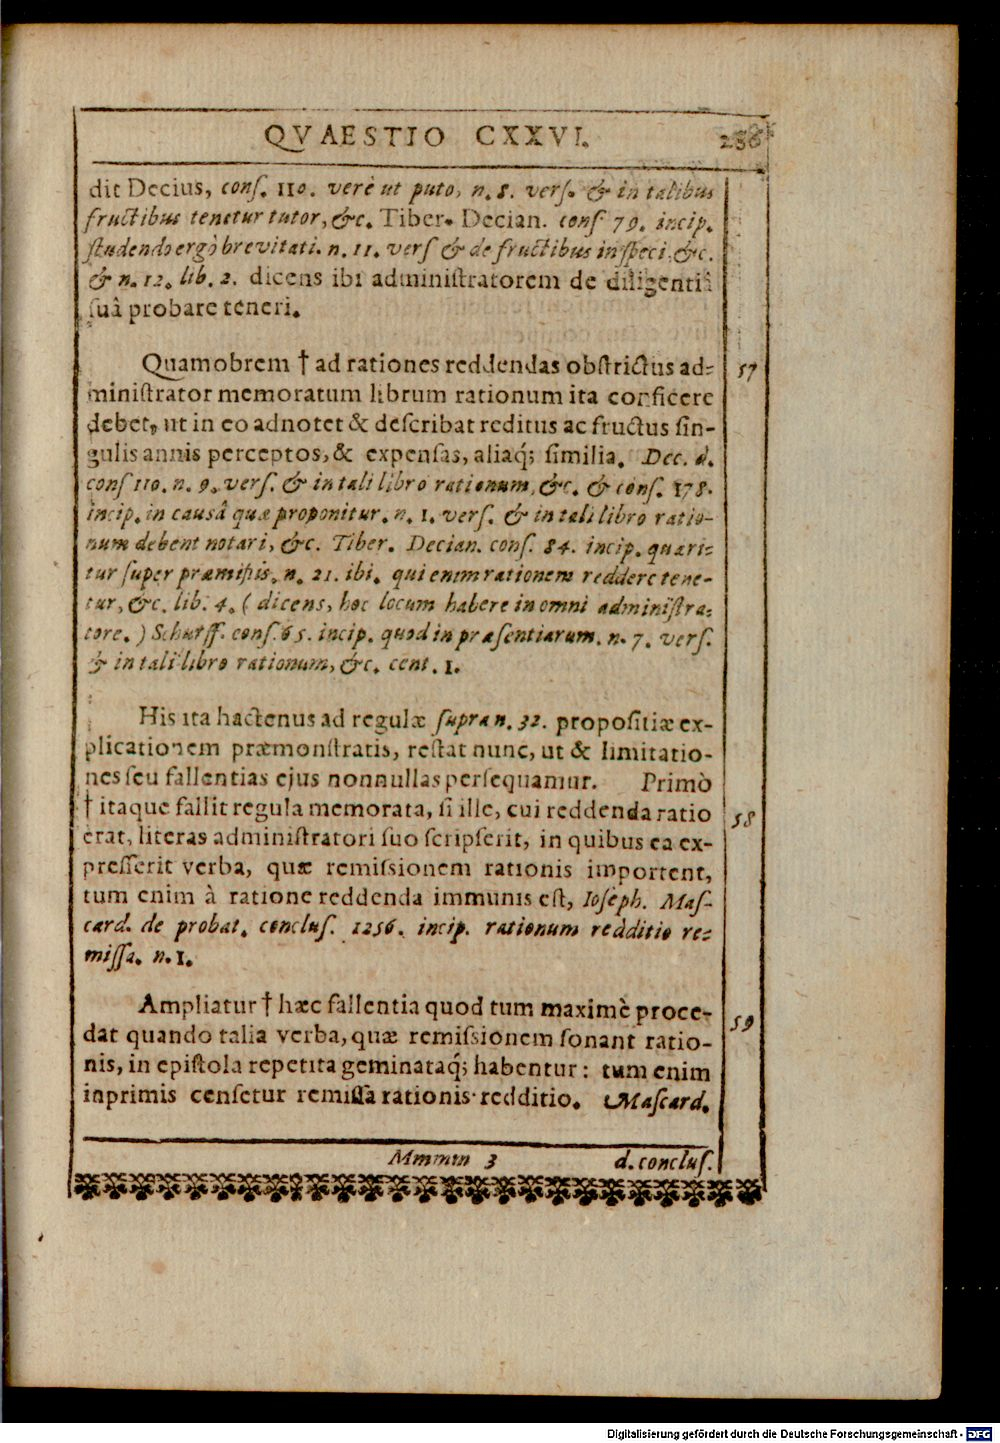 QVAESTIO CXXVI. 236
dit Decius, conſ. 110. verè ut puto, n. 8. verſ. & in talibus
fructibus tenetur tutor, &c. Tiber. Decian. conſ 79. incip.
ſtudendo ergò brevitati. n. 11. verſ & de fructibus inſpeci, &c.
& n. 12. lib. 2. dicens ibi adminiſtratorem de diligentiâ
ſuâ probare teneri.
Quamobrem † ad rationes reddendas obſtrictus ad- 57
miniſtrator memoratum librum rationum ita conficere
debet, ut in eo adnotet & deſcribat reditus ac fructus ſin-
gulis annis perceptos, & expenſas, aliaq́; ſimilia. Dec. d.
conſ 110. n. 9. verſ. & in tali libro rationum, &c. & conſ. 178.
incip. in causâ quæ proponitur. n. 1. verſ. & in tali libro ratio-
num debent notari, &c. Tiber. Decian. conſ. 84. incip. quæri-
tur ſuper præmiſsis, n. 21. ibi. qui enim rationem reddere tene-
tur, &c. lib. 4. ( dicens, hoc locum habere in omni adminiſtra-
tore. ) Schurff. conſ. 65. incip. quod in præſentiarum. n. 7. verſ.
& in tali libro rationum, &c. cent. 1.
His ita hactenus ad regulæ ſupra n. 32. propoſitiæ ex-
plicationem præmonſtratis, reſtat nunc, ut & limitatio-
nes ſeu fallentias ejus nonnullas perſequamur. Primò
† itaque fallit regula memorata, ſi ille, cui reddenda ratio 58
erat, literas adminiſtratori ſuo ſcripſerit, in quibus ea ex-
preſſerit verba, quæ remiſsionem rationis important,
tum enim à ratione reddenda immunis eſt, Ioſeph. Maſ-
card. de probat. concluſ. 1256. incip. rationum redditio re-
miſſa. n. 1.
Ampliatur † hæc fallentia quod tum maximè proce-
dat quando talia verba, quæ remiſsionem ſonant ratio- 59
nis, in epiſtola repetita geminataq́; habentur: tum enim
inprimis cenſetur remiſſa rationis redditio. Maſcard.
Mmmmm 3 d. concluſ.
Digitalisierung gefördert durch die Deutsche Forschungsgemeinschaft - DFG